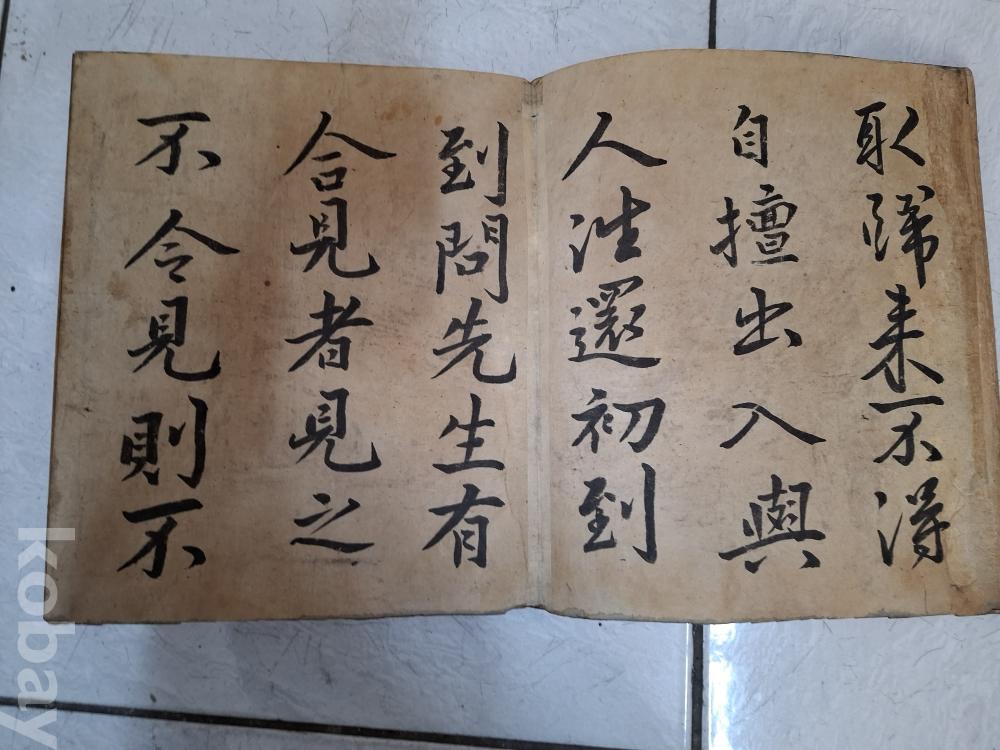 取歸来不得
自擅出入與
人往還初到
到問先生有
合見者見之
不令見則不
kobay